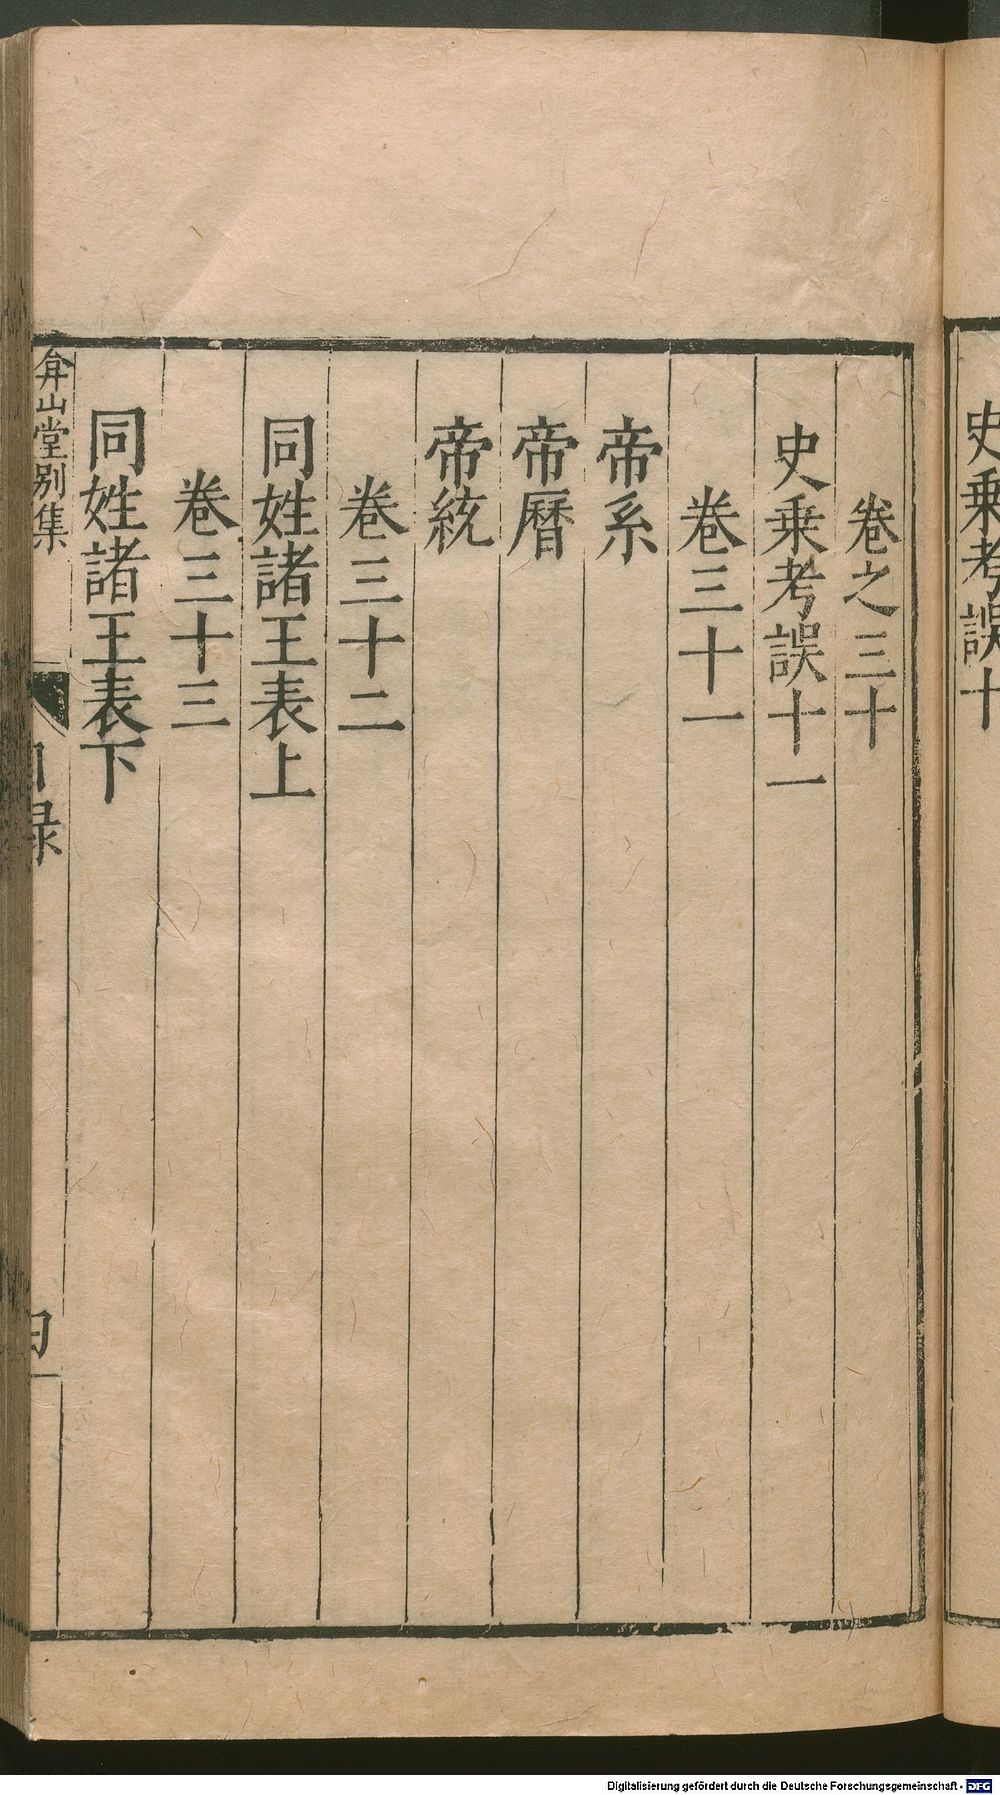 史乗考誤十
卷之三十
史乗考誤十一
卷三十一
帝系
帝曆
帝統
卷三十二
同姓諸王表上
卷三十三
同姓諸王表下
弇山堂別集
目録
四
Digitalisierung gefördert durch die Deutsche Forschungsgemeinschaft - DFG